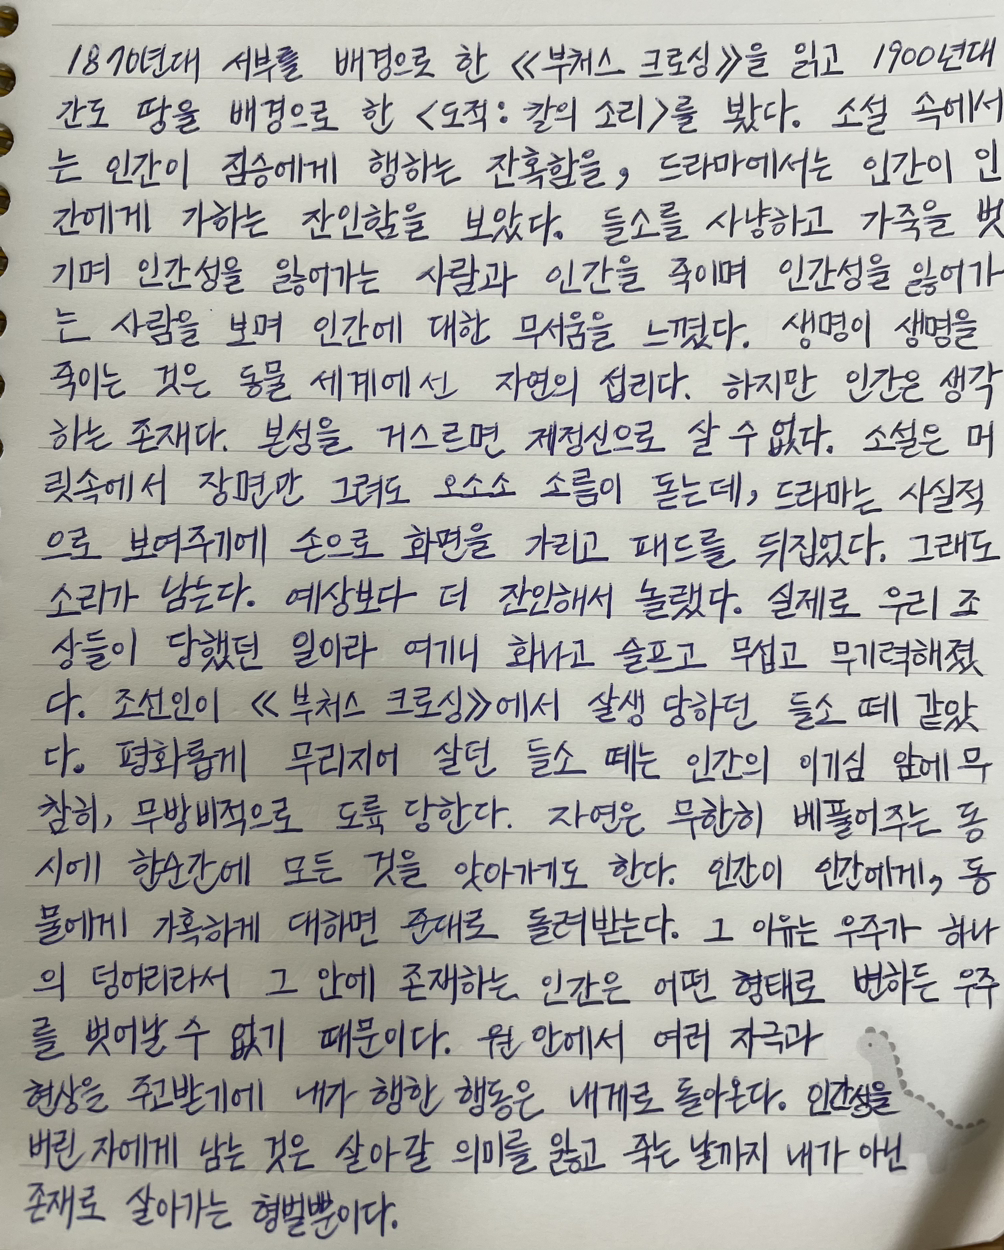 1870년대 서부를 배경으로 한 《부처스 크로싱》을 읽고 1900년대
간도 땅을 배경으로 한 <도적: 칼의 소리>를 봤다. 소설 속에서
는 인간이 짐승에게 행하는 잔혹함을, 드라마에서는 인간이 인
간에게 가하는 잔인함을 보았다. 들소를 사냥하고 가죽을 벗
기며 인간성을 잃어가는 사람과 인간을 죽이며 인간성을 잃어가
는 사람을 보며 인간에 대한 무서움을 느꼈다. 생명이 생명을
죽이는 것은 동물 세계에선 자연의 섭리다. 하지만 인간은 생각
하는 존재다. 본성을 거스르면 제정신으로 살 수 없다. 소설은 머
릿속에서 장면만 그려도 오소소 소름이 돋는데, 드라마는 사실적
으로 보여주기에 손으로 화면을 가리고 패드를 뒤집었다. 그래도
소리가 남는다. 예상보다 더 잔인해서 놀랬다. 실제로 우리 조
상들이 당했던 일이라 여기니 화나고 슬프고 무섭고 무기력해졌
다. 조선인이 《부처스 크로싱》에서 살생 당하던 들소 떼 같았
다. 평화롭게 무리지어 살던 들소 떼는 인간의 이기심 앞에 무
참히, 무방비적으로 도륙 당한다. 자연은 무한히 베풀어주는 동
시에 한순간에 모든 것을 앗아가기도 한다. 인간이 인간에게, 동
물에게 가혹하게 대하면 준대로 돌려받는다. 그 이유는 우주가 하나
의 덩어리라서 그 안에 존재하는 인간은 어떤 형태로 변하든 우주
를 벗어날 수 없기 때문이다. 원 안에서 여러 자극과
현상을 주고받기에 내가 행한 행동은 내게로 돌아온다. 인간성을
버린 자에게 남는 것은 살아갈 의미를 잃고 죽는 날까지 내가 아닌
존재로 살아가는 형벌뿐이다.